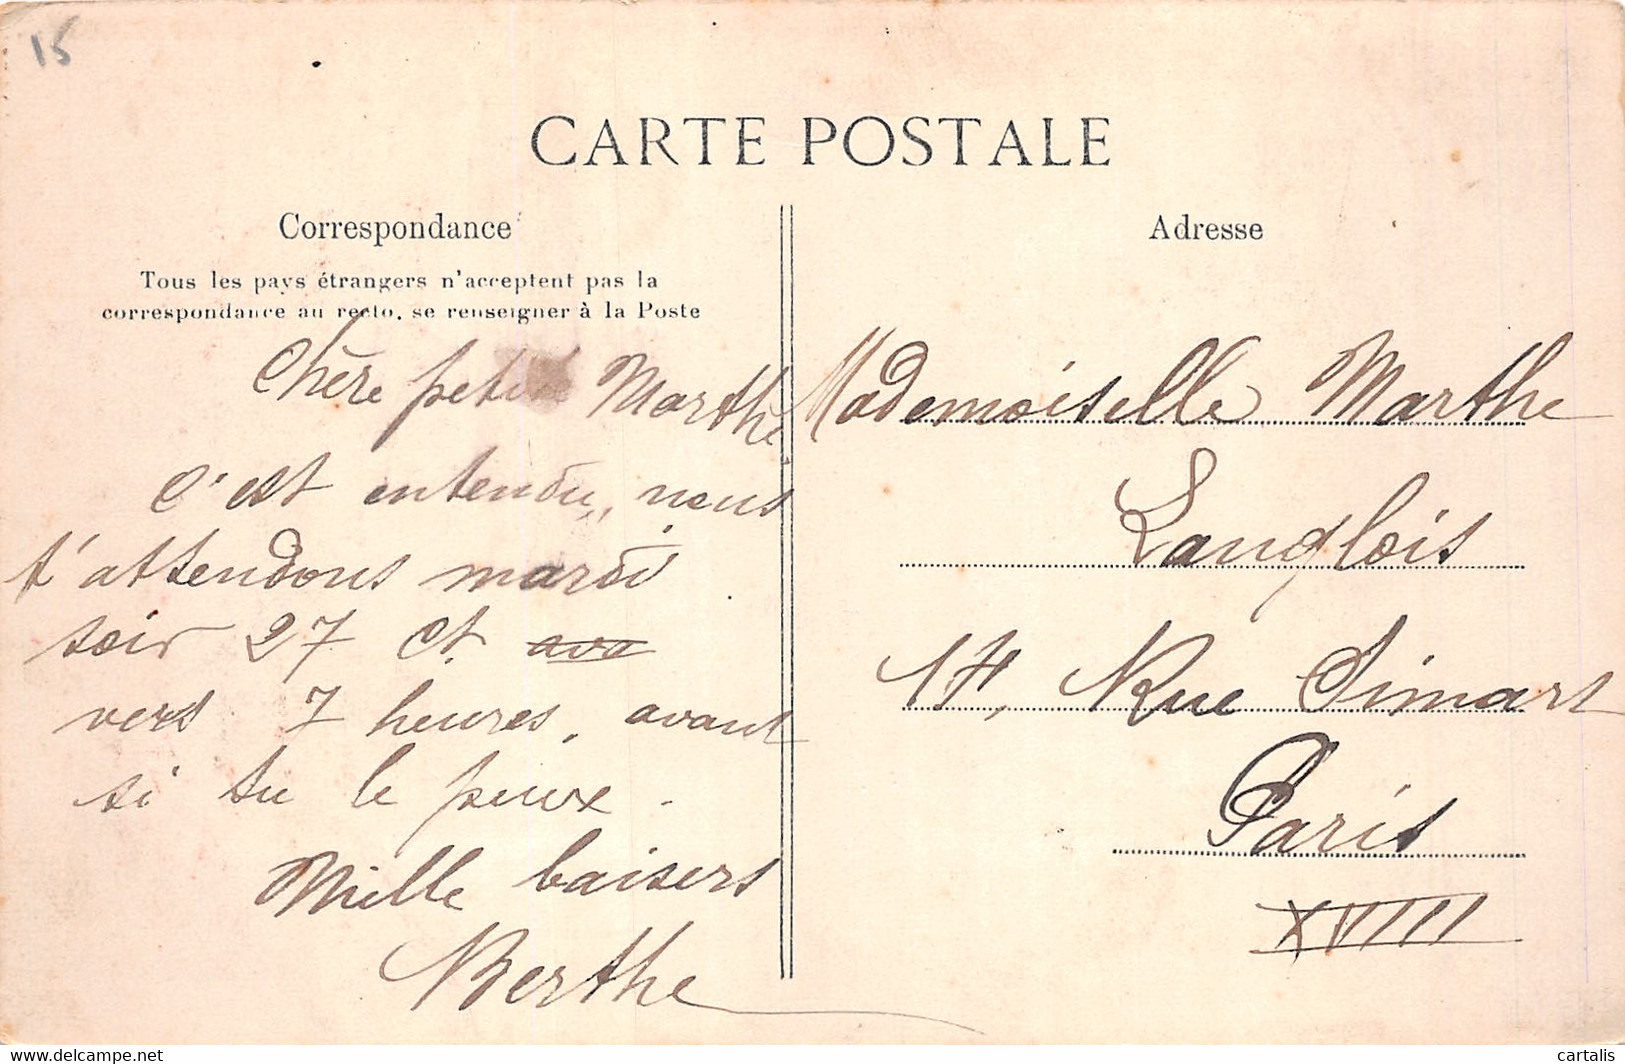 15
CARTE POSTALE
Correspondance
Tous les pays étrangers n'acceptent pas la
correspondance au recto, se renseigner à la Poste
Chère petite Marthe,
C'est entendu, nous
t'attendons mardi
soir 27 Ct. ava
vers 7 heures, avant
si tu le peux.
Mille baisers
Berthe
Adresse
Mademoiselle Marthe
Langlois
14, Rue Simart
Paris
XVIIII
www.delcampe.net
cartalis